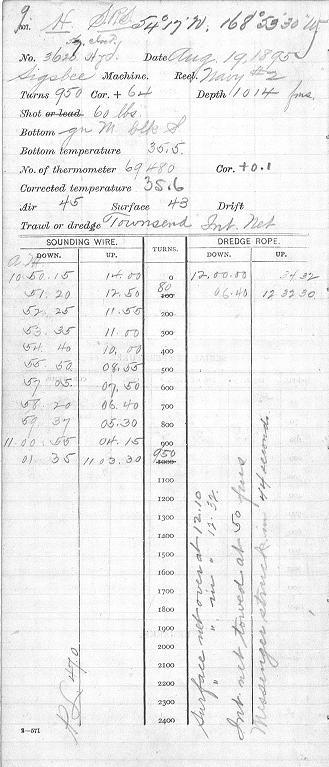 Lat. N. 54° 17' N, 168° 58' 30" W
No. 3620 Hyd. Date Aug. 19, 1895
Sigsbee Machine. Reel Navy #2
Turns 950 Cor. + 64 Depth 1014 fms.
Shot or lead 60 lbs.
Bottom gn M blk S
Bottom temperature 35.5
No. of thermometer 69480 Cor. +0.1
Corrected temperature 35.6
Air 45 Surface 43 Drift
Trawl or dredge Townsend Int. Net
SOUNDING WIRE. TURNS. DREDGE ROPE.
DOWN. UP. DOWN. UP.
A.M.
10.50.15 14.00 0 12.00.00 34.32
51.20 12.50 80 100 06.40 12.32.30
52.25 11.55 200
53.35 11.00 300
54.40 10.00 400
55.50 08.55 500
57.05 07.50 600
58.20 06.40 700
59.37 05.30 800
11.00.55 04.15 900
01.35 11.03.30 950 1000
1100
1200
1300
1400
1500
1600
1700
1800
1900
2000
2100
2200
2300
2400
Surface net over at 12.10
" " in " 12.32
Int net towed at 50 fms
Messenger struck in 44 seconds.
2—571